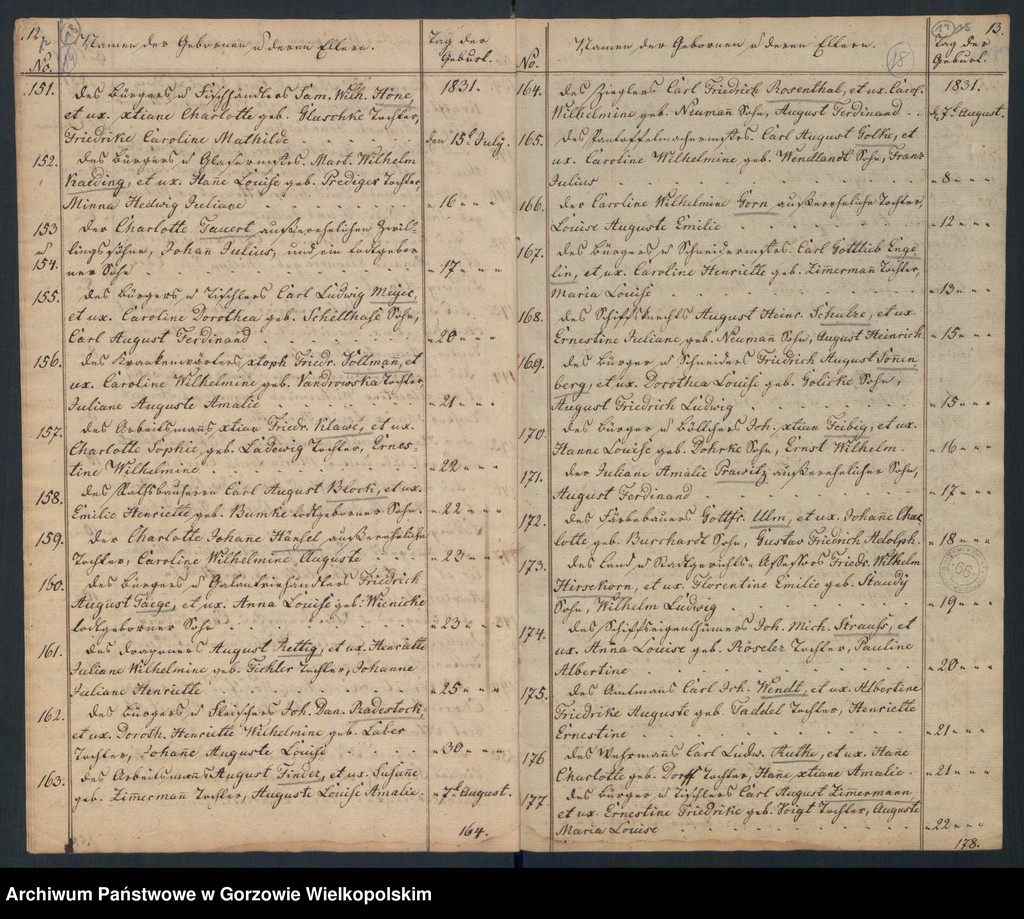 12.
Namen der Gebornen u deren Eltern.
Tag der Geburt.
No.
151. des Bürgers u Fischhändlers Sam. Wilh. Höne, 1831.
et ux. xtiane Charlotte geb. Glaschke Tochter,
Friedrike Caroline Mathilde den 15t July.
152. des Bürgers u Glasermstrs. Mart. Wilhelm
Kaeding, et ux. Hañe Louise geb. Prediger Tochter,
Minna Hedwig Juliane - 16 - - -
153 der Charlotte Tauert außerehelichen Zwil-
u lingssöhne, Johan Julius, und ein todtgebor-
154. ner Sohn - 17 - - -
155. des Bürgers u Tischlers Carl Ludwig Meyer,
et ux. Caroline Dorothea geb. Schillhase Sohn,
Carl August Ferdinand - 20 - - -
156. des Krankenwärters xtoph Friedr. Voltmañ, et
ux. Caroline Wilhelmine geb. Vandrowska Tochter,
Juliane Auguste Amalie - 21 - - -
157. des Arbeitsmanns xtian Friedr. Klawe, et ux.
Charlotte Sophie, geb. Ladewig Tochter, Ernes-
tine Wilhelmine - 22 - - -
158. des Rathsbauherrn Carl August Block, et ux.
Emilie Henriette, geb. Bumke todtgeborner Sohn. - 22 - - -
159. der Charlotte Johañe Hänsel außereheliche
Tochter, Caroline Wilhelmine Auguste - 23 - - -
160. des Bürgers u Galanteriehändlers Friedrich
August Taege, et ux. Anna Louise geb: Wienicke
todtgeborner Sohn - 23 - - -
161. des Dragoners August Rettig, et ux. Henriette
Juliane Wilhelmine geb. Fichter Tochter, Johanne
Juliane Henriette - 25 - - -
162. des Bürgers u Fleischers Joh. Dan. Radestock,
et ux. Doroth. Henriette Wilhelmine geb. Laber
Tochter, Johañe Auguste Louise - 30 - - -
163. des Arbeitsmanns August Finder, et ux. Susañe
geb. Zimmermañ Tochter, Auguste Louise Amalie. - 7t August.
164.
13.
18
Namen der Gebornen u deren Eltern.
Tag der Geburt.
No.
164. des Zieglers Carl Friedrich Rosenthal, et ux. Carol. 1831.
Wilhelmine geb. Neumañ Sohn, August Ferdinand d. 7t August.
165. des Pantoffelmachermstrs. Carl August Golke, et
ux. Caroline Wilhelmine geb. Wendlandt Sohn, Franz
Julius - 8 - - -
166. der Caroline Wilhelmine Gorn außereheliche Tochter,
Louise Auguste Emilie - 12 - - -
167. des Bürgers u Schneidermstrs. Carl Gottlieb Enge-
lin, et ux. Caroline Henriette geb. Zimmermañ Tochter,
Maria Louise - 13 - - -
168. des Schiffsknechts August Heinr. Schulze, et ux.
Ernestine Juliane, geb. Neumañ Sohn, August Heinrich - 15 - - -
169. des Bürger u Schneiders Friedrich August Soñen-
berg, et ux. Dorothea Louise geb. Golicke Sohn,
August Friedrich Ludwig - 15 - - -
170. des Bürger u Böttchers Joh. xtian Feibig, et ux.
Hanne Louise geb. Dohrke Sohn, Ernst Wilhelm - 16 - - -
171. der Juliane Amalie Prawitz außerehelicher Sohn,
August Ferdinand - 17 - - -
172. des Färbebauers Gottfr. Ulm, et ux. Johañe Char-
lotte geb. Burchardt Sohn, Gustav Friedrich Adolph. - 18 - - -
173. des Land u Stadtgerichts-Assessors Friedr. Wilhelm
Hirsekorn, et ux. Florentine Emilie geb. Staudy
Sohn, Wilhelm Ludwig - 19 - - -
174. des Schiffseigenthümers Joh. Mich. Strauss, et
ux. Anna Louise geb. Röseler Tochter, Pauline
Albertine - 20 - - -
175. des Amtmans Carl Joh. Wendt, et ux. Albertine
Friedrike Auguste geb. Taddel Tochter, Henriette
Ernestine - 21 - - -
176 des Wehrmanns Carl Ludw. Ruthe, et ux. Hañe
Charlotte geb. Dorff Tochter, Hañe xtiane Amalie. - 21 - - -
177. des Bürger u Tischlers Carl August Zimmermann
et ux. Ernestine Friedrike geb. Voigt Tochter, Auguste
Maria Louise - 22 - - -
178.
Archiwum Państwowe w Gorzowie Wielkopolskim